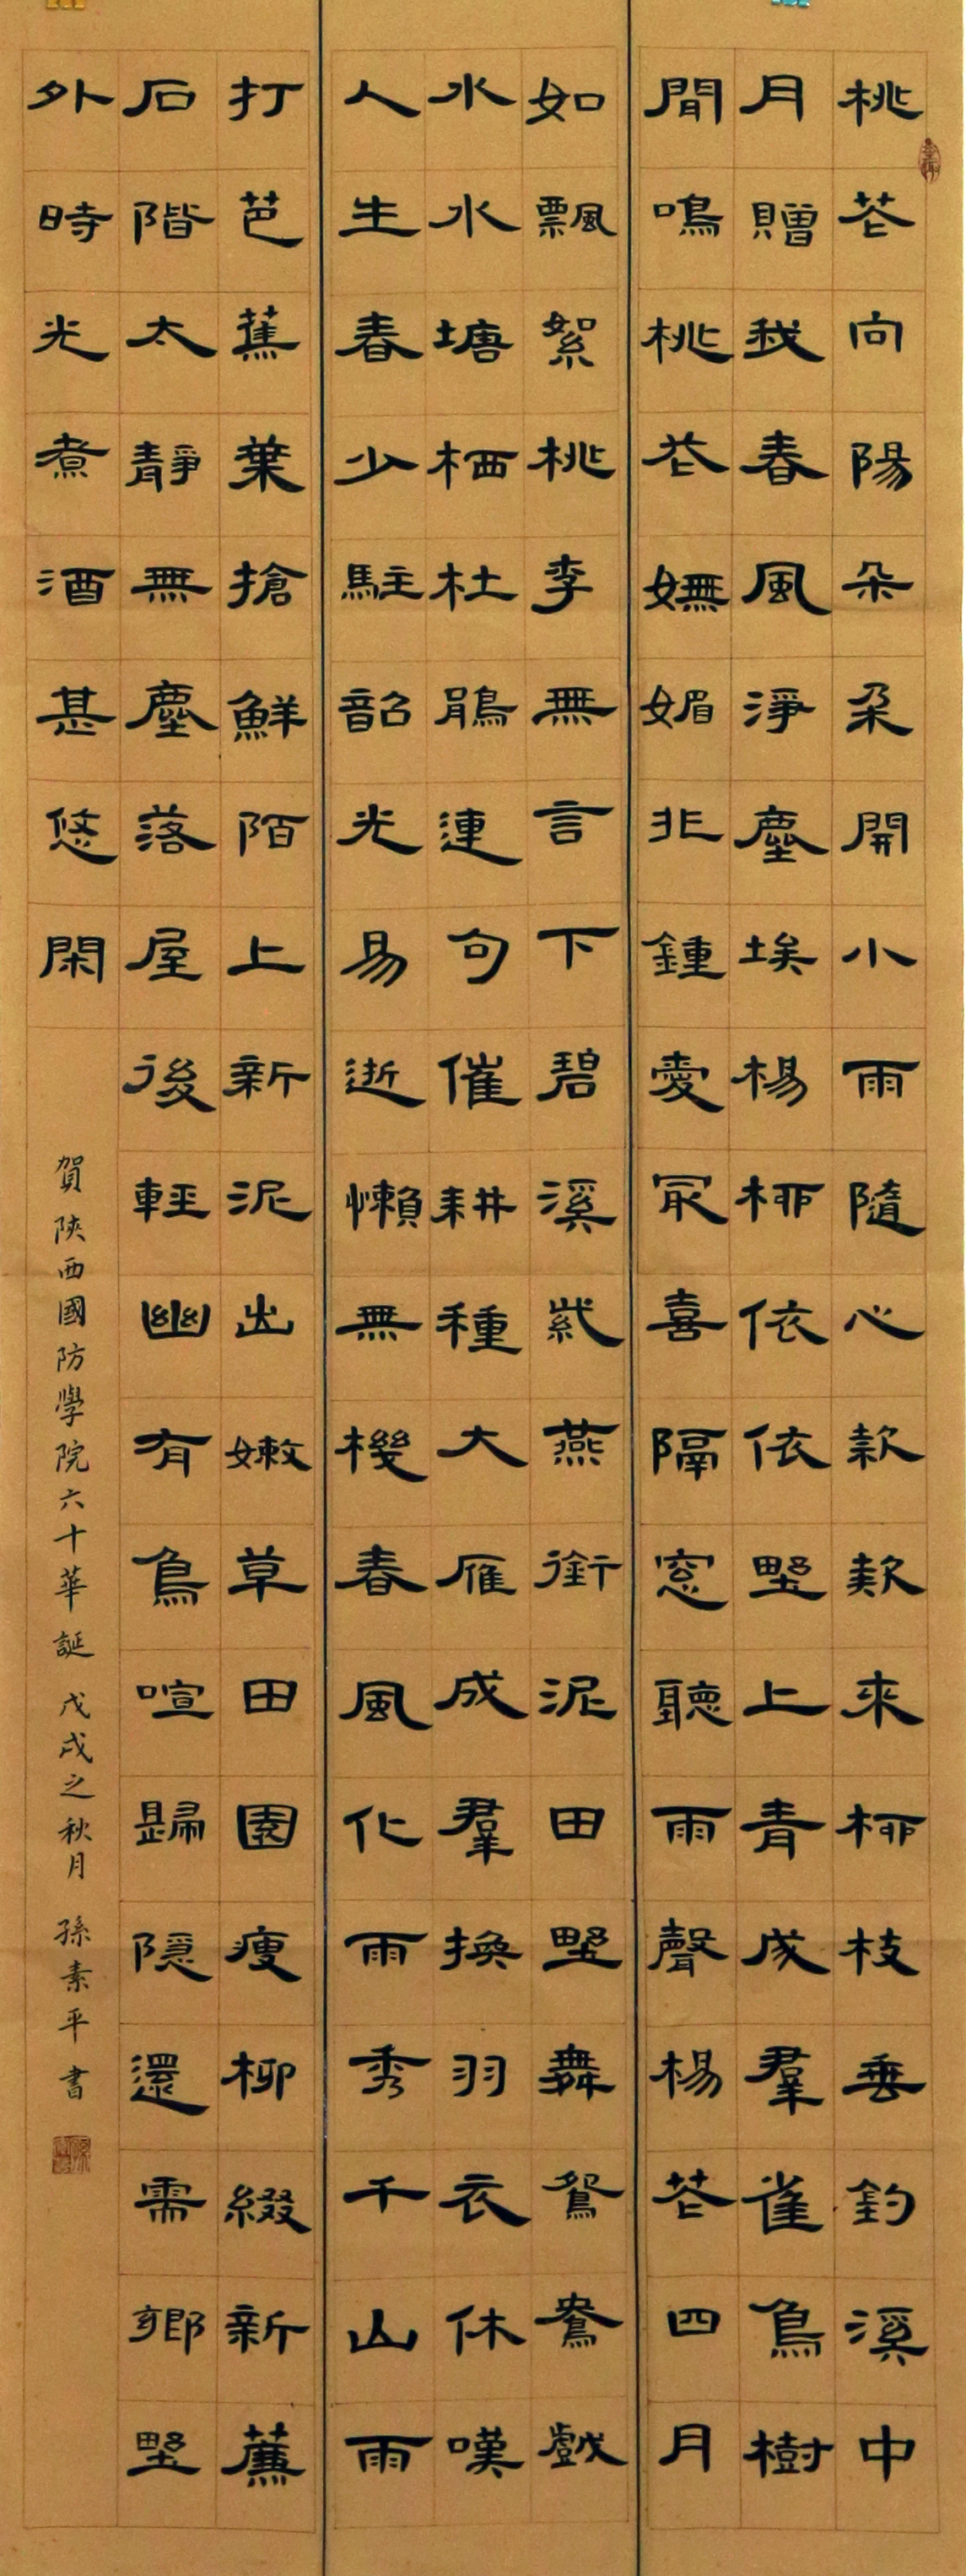 桃芲向陽朵朵開小雨隨心款款來柳枝垂釣溪中
月贈我春風淨塵埃楊柳依依野上青成羣雀鳥樹
間鳴桃芲嫵媚非鍾愛最喜隔窓聽雨聲楊芲四月
如飄絮桃李無言下碧溪紫燕銜泥田野舞鴛鴦戲
水水塘栖杜鵑連句催耕種大雁成羣換羽衣休嘆
人生春少駐韶光易逝懶無機春風化雨秀千山雨
打芭蕉葉搶鮮陌上新泥出嫩草田園瘦柳綴新薦
石階太靜無塵落屋後輕幽有鳥喧歸隱還需鄉野
外時光煮酒甚悠閑
賀陝西國防學院六十華誕 戊戌之秋月 孫素平書